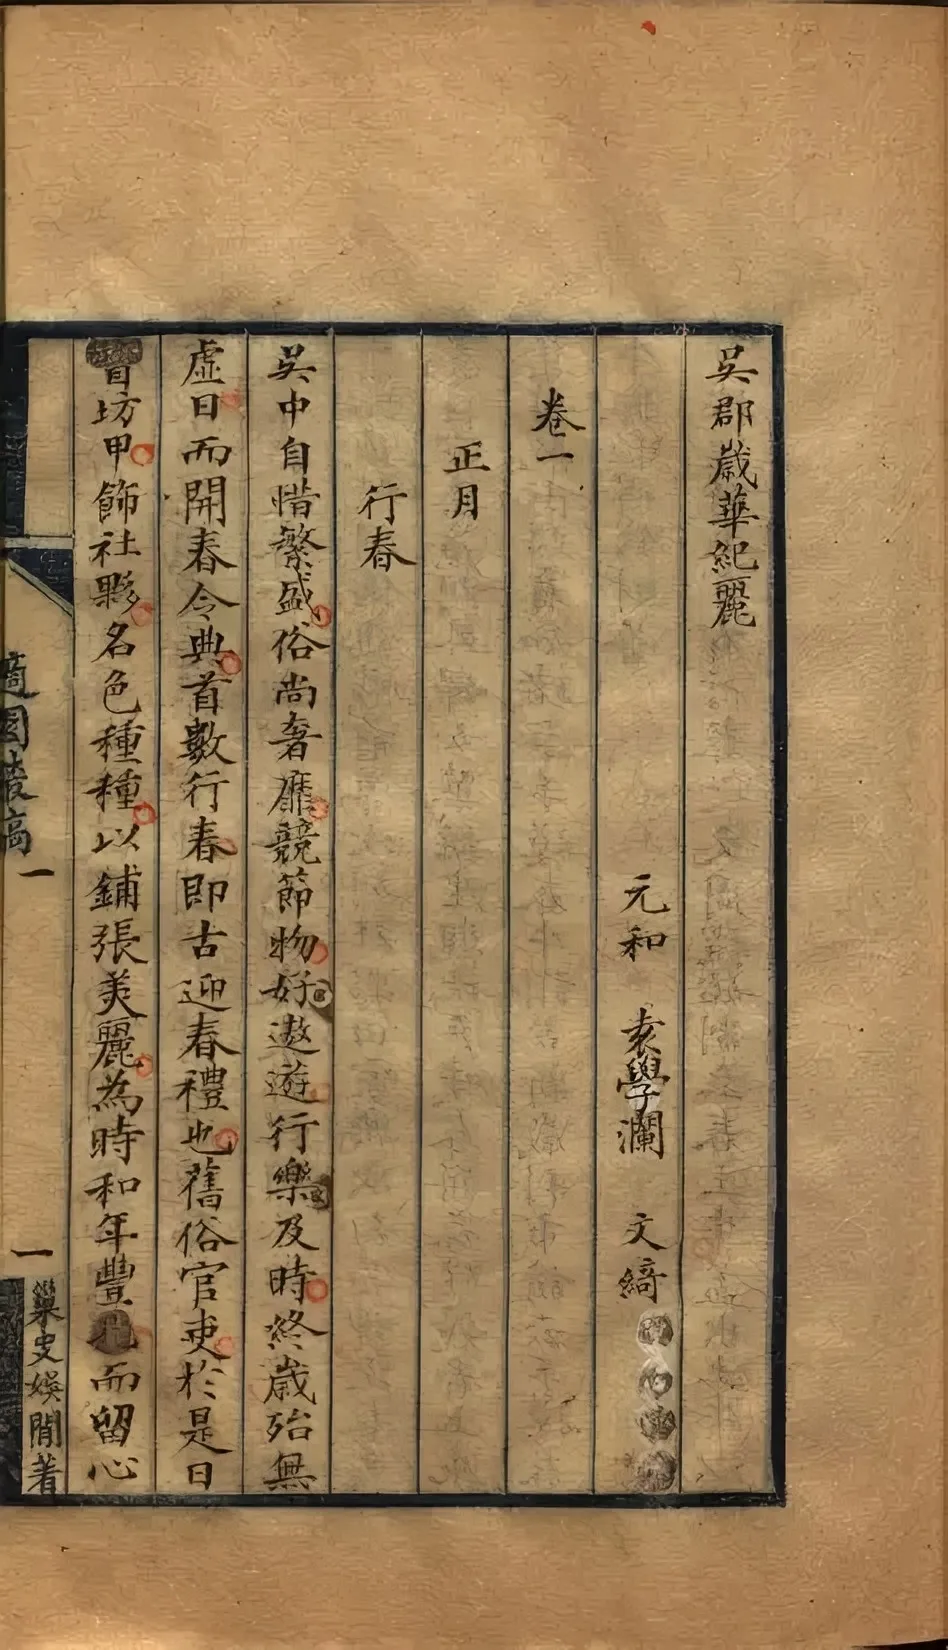 吳郡歲華紀麗
元和 袁學瀾 文綺
卷一
正月
行春
吳中自惜繁盛俗尚奢靡競節物好遨遊行樂及時終歲殆無
虛日而開春令典首數行春即古迎春禮也舊俗官吏於是日
督坊甲飾社夥名色種種以鋪張美麗為時和年豐而留心
適園叢稿 一
一 巢史娛閒著